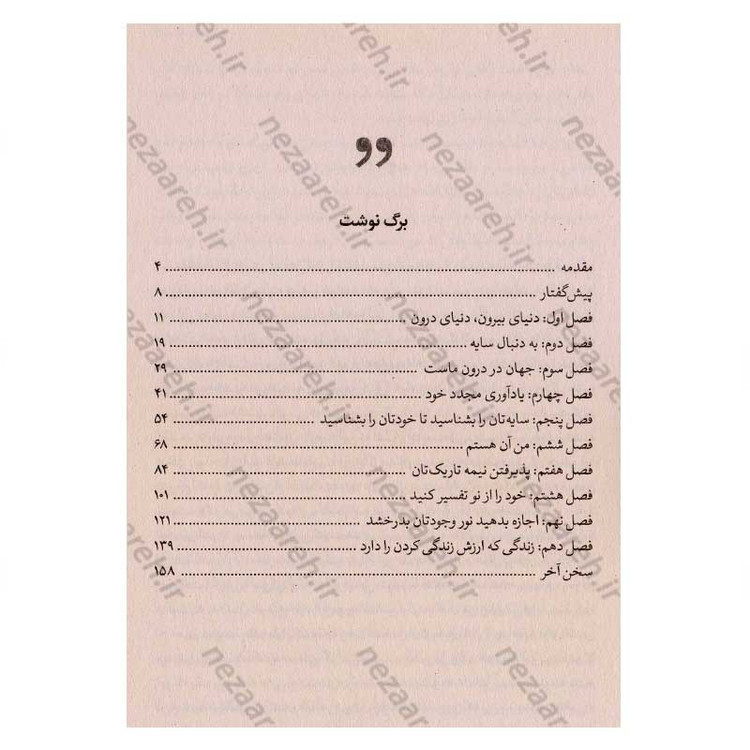 برگ نوشت
مقدمه ........ ۴
پیش‌گفتار ........ ۸
فصل اول: دنیای بیرون، دنیای درون ........ ۱۱
فصل دوم: به دنبال سایه ........ ۱۹
فصل سوم: جهان در درون ماست ........ ۲۹
فصل چهارم: یادآوری مجدد خود ........ ۴۱
فصل پنجم: سایه‌تان را بشناسید تا خودتان را بشناسید ........ ۵۴
فصل ششم: من آن هستم ........ ۶۸
فصل هفتم: پذیرفتن نیمه تاریک‌تان ........ ۸۴
فصل هشتم: خود را از نو تفسیر کنید ........ ۱۰۱
فصل نهم: اجازه بدهید نور وجودتان بدرخشد ........ ۱۲۱
فصل دهم: زندگی که ارزش زندگی کردن را دارد ........ ۱۳۹
سخن آخر ........ ۱۵۸
nezaareh.ir